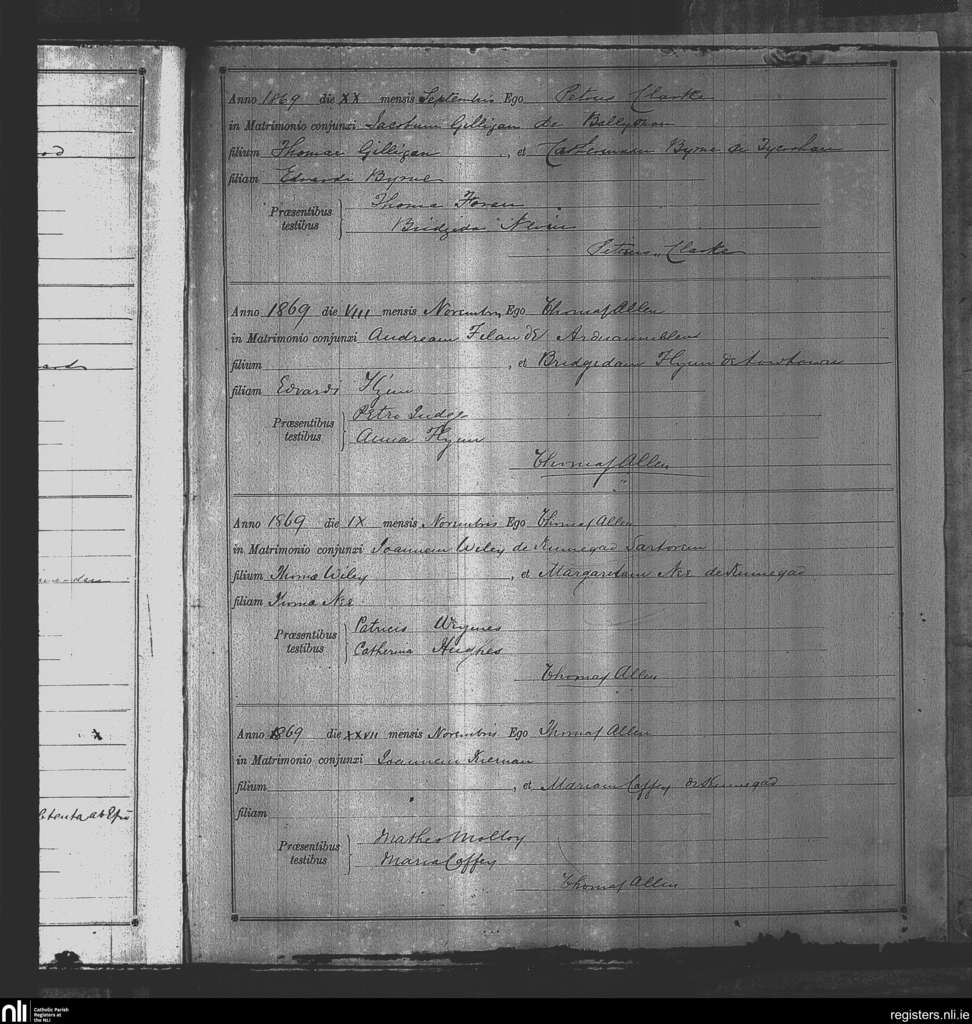 Anno 1869 die XX mensis Septembris Ego Petrus Clarke
in Matrimonio conjunxi Jacobum Gilligan de
filium Thomae Gilligan, et Catherinam Byrne de
filiam Edvardi Byrne
Præsentibus testibus
Thoma
Bridgida
Petrus Clarke
Anno 1869 die VIII mensis Novembris Ego Thomas Allen
in Matrimonio conjunxi Andream Filan de
filium , et Bridgidam Flynn de
filiam Edvardi Flynn
Præsentibus testibus
Petro Judge
Anna Flynn
Thomas Allen
Anno 1869 die IX mensis Novembris Ego Thomas Allen
in Matrimonio conjunxi Joannem Wiley de Kinnegad
filium Thomæ Wiley , et Margaritam Nee de Kinnegad
filiam Thoma Nee
Præsentibus testibus
Patricis
Catherina Hughes
Thomas Allen
Anno 1869 die XXVII mensis Novembris Ego Thomas Allen
in Matrimonio conjunxi Joannem Kiernan
filium , et Mariam Caffey de Kinnegad
filiam
Præsentibus testibus
Matheo Molloy
Maria Caffey
Thomas Allen
nli Catholic Parish Registers at the NLI
registers.nli.ie